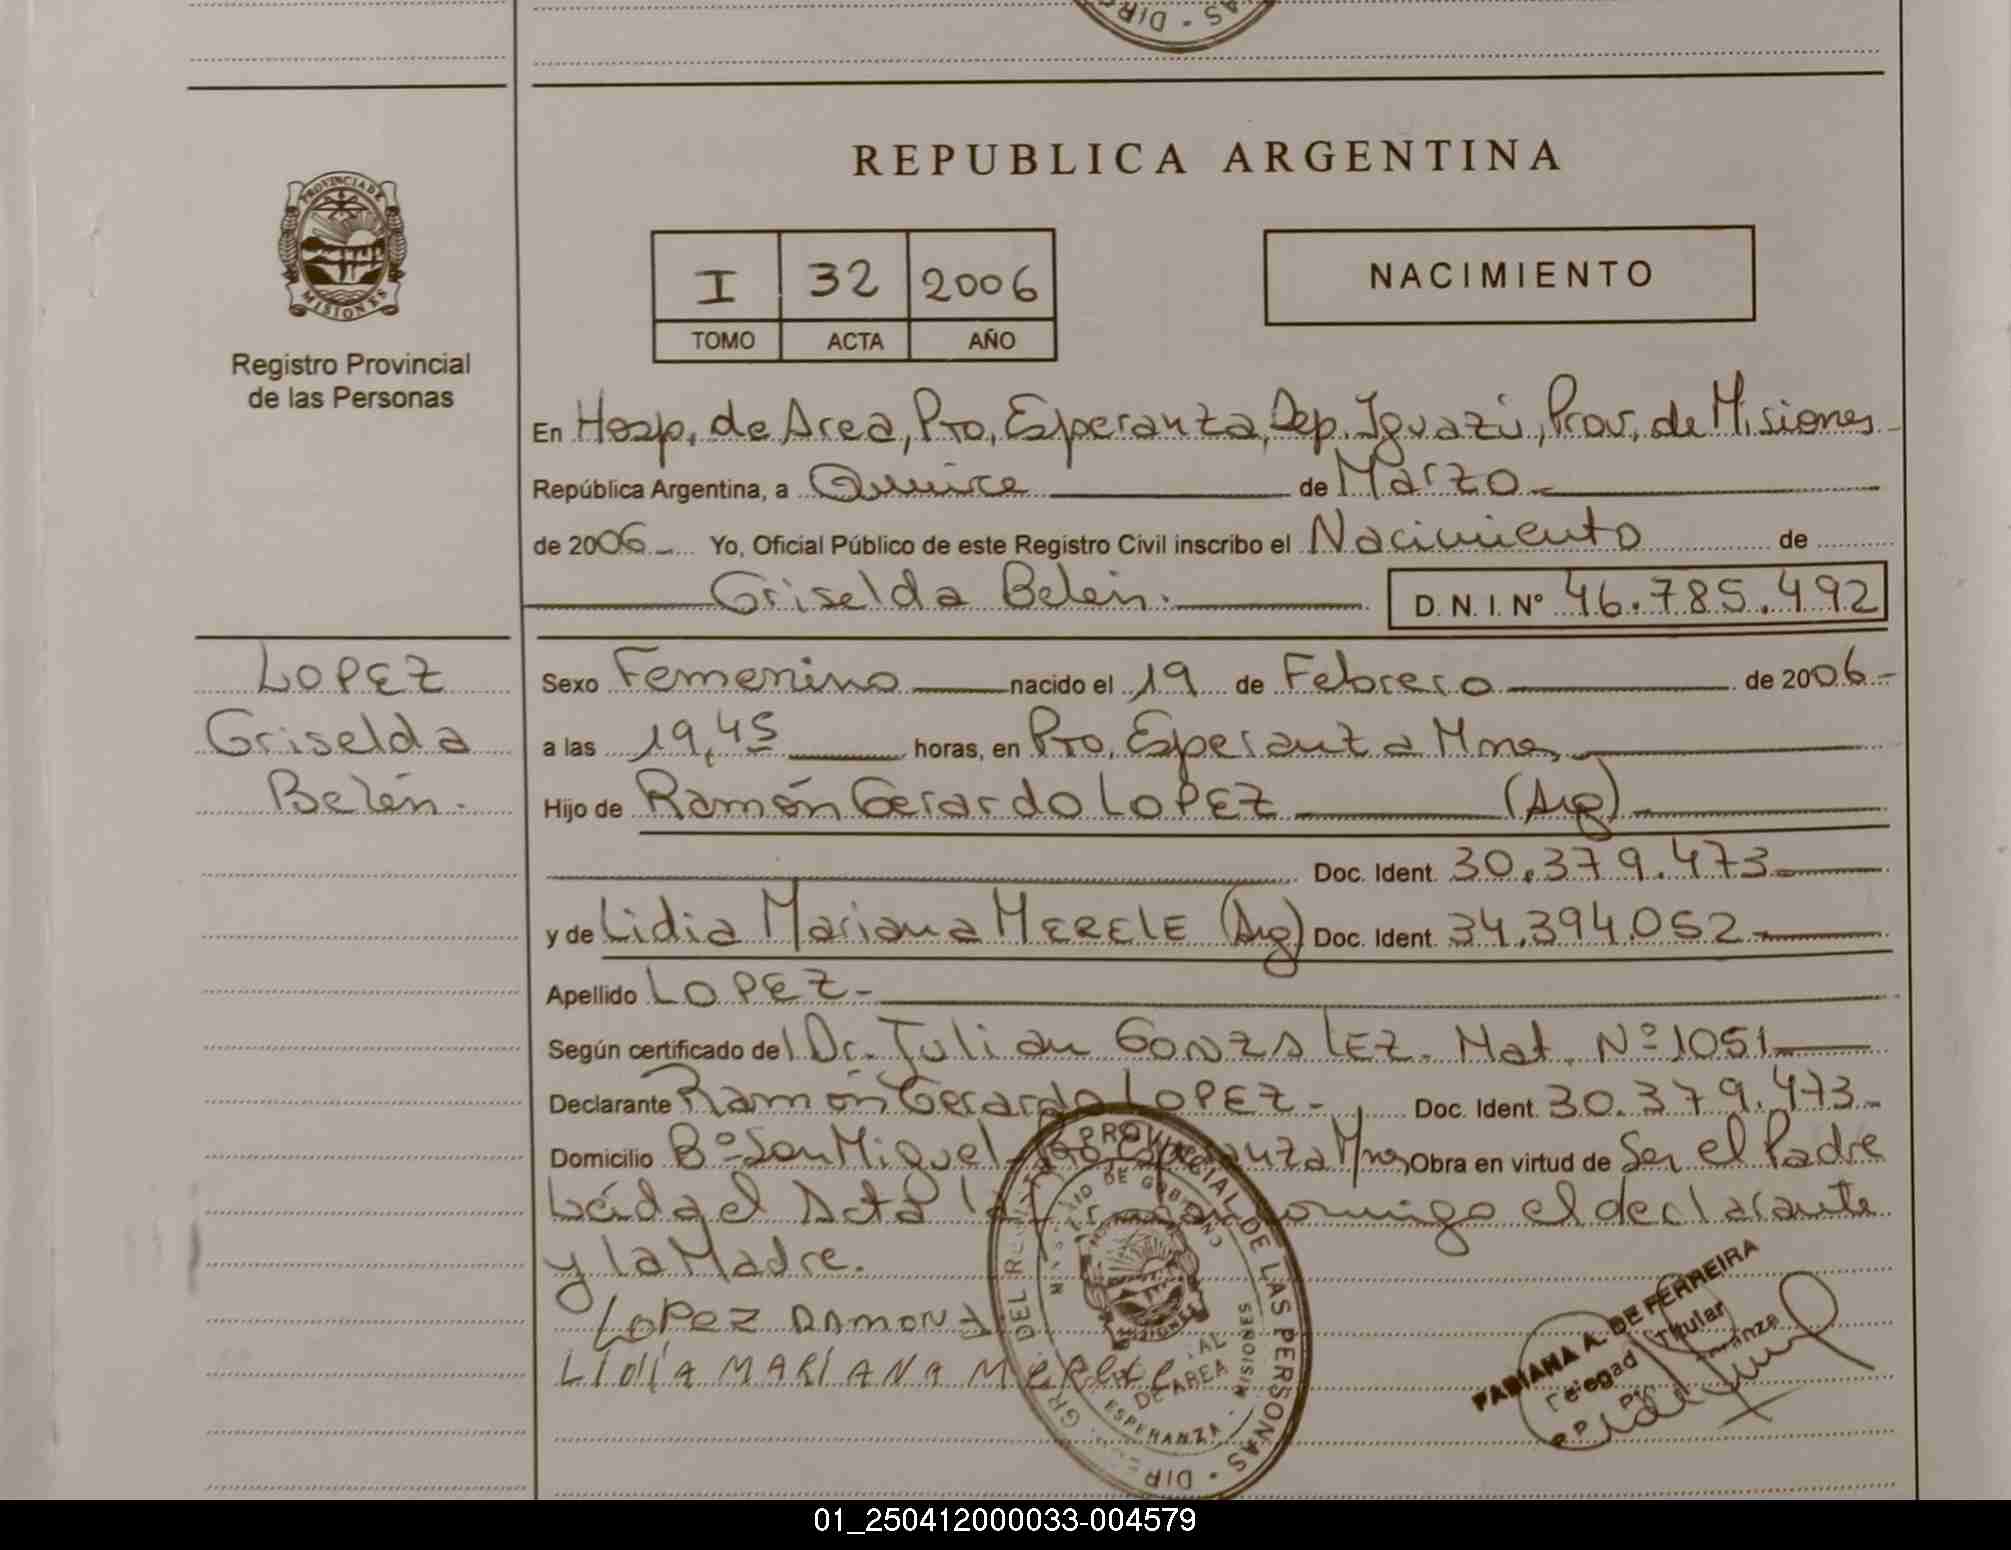 REPUBLICA ARGENTINA
PROVINCIA DE
MISIONES
Registro Provincial
de las Personas
I 32 2006
TOMO ACTA AÑO
NACIMIENTO
En Hosp. de Area, Pto. Esperanza, Dep. Iguazú, Prov. de Misiones
República Argentina, a Quince de Marzo
de 2006 Yo, Oficial Público de este Registro Civil inscribo el Nacimiento de
Griselda Belén. D. N. I. N° 46.785.492
LOPEZ
Griselda
Belén.
Sexo Femenino nacido el 19 de Febrero de 2006
a las 19,45 horas, en Pto. Esperanza Mnes
Hijo de Ramón Gerardo LOPEZ (Arg)
Doc. Ident. 30.379.473
y de Lidia Mariana MERELE (Arg) Doc. Ident. 34.394.052
Apellido LOPEZ
Según certificado del Dr. Julian GONZALEZ. Mat. Nº 1051
Declarante Ramón Gerardo LOPEZ Doc. Ident. 30.379.473
Domicilio Bº San Miguel Pto Esperanza Mnes Obra en virtud de Ser el Padre
Leída el Acta la firman conmigo el declarante
y la Madre.
LOPEZ RAMON
LIDIA MARIANA Merele
PROVINCIAL DE LAS PERSONAS
MISIONES
DE AREA
ESPERANZA
FABIANA A. DE FERREIRA
Titular
01_250412000033-004579